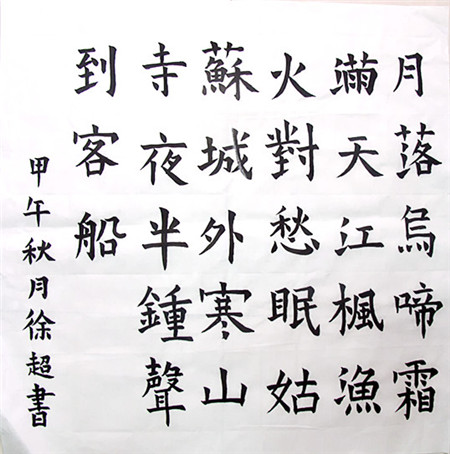 月落烏啼霜
滿天江楓漁
火對愁眠姑
蘇城外寒山
寺夜半鍾聲
到客船
甲午秋月徐超書